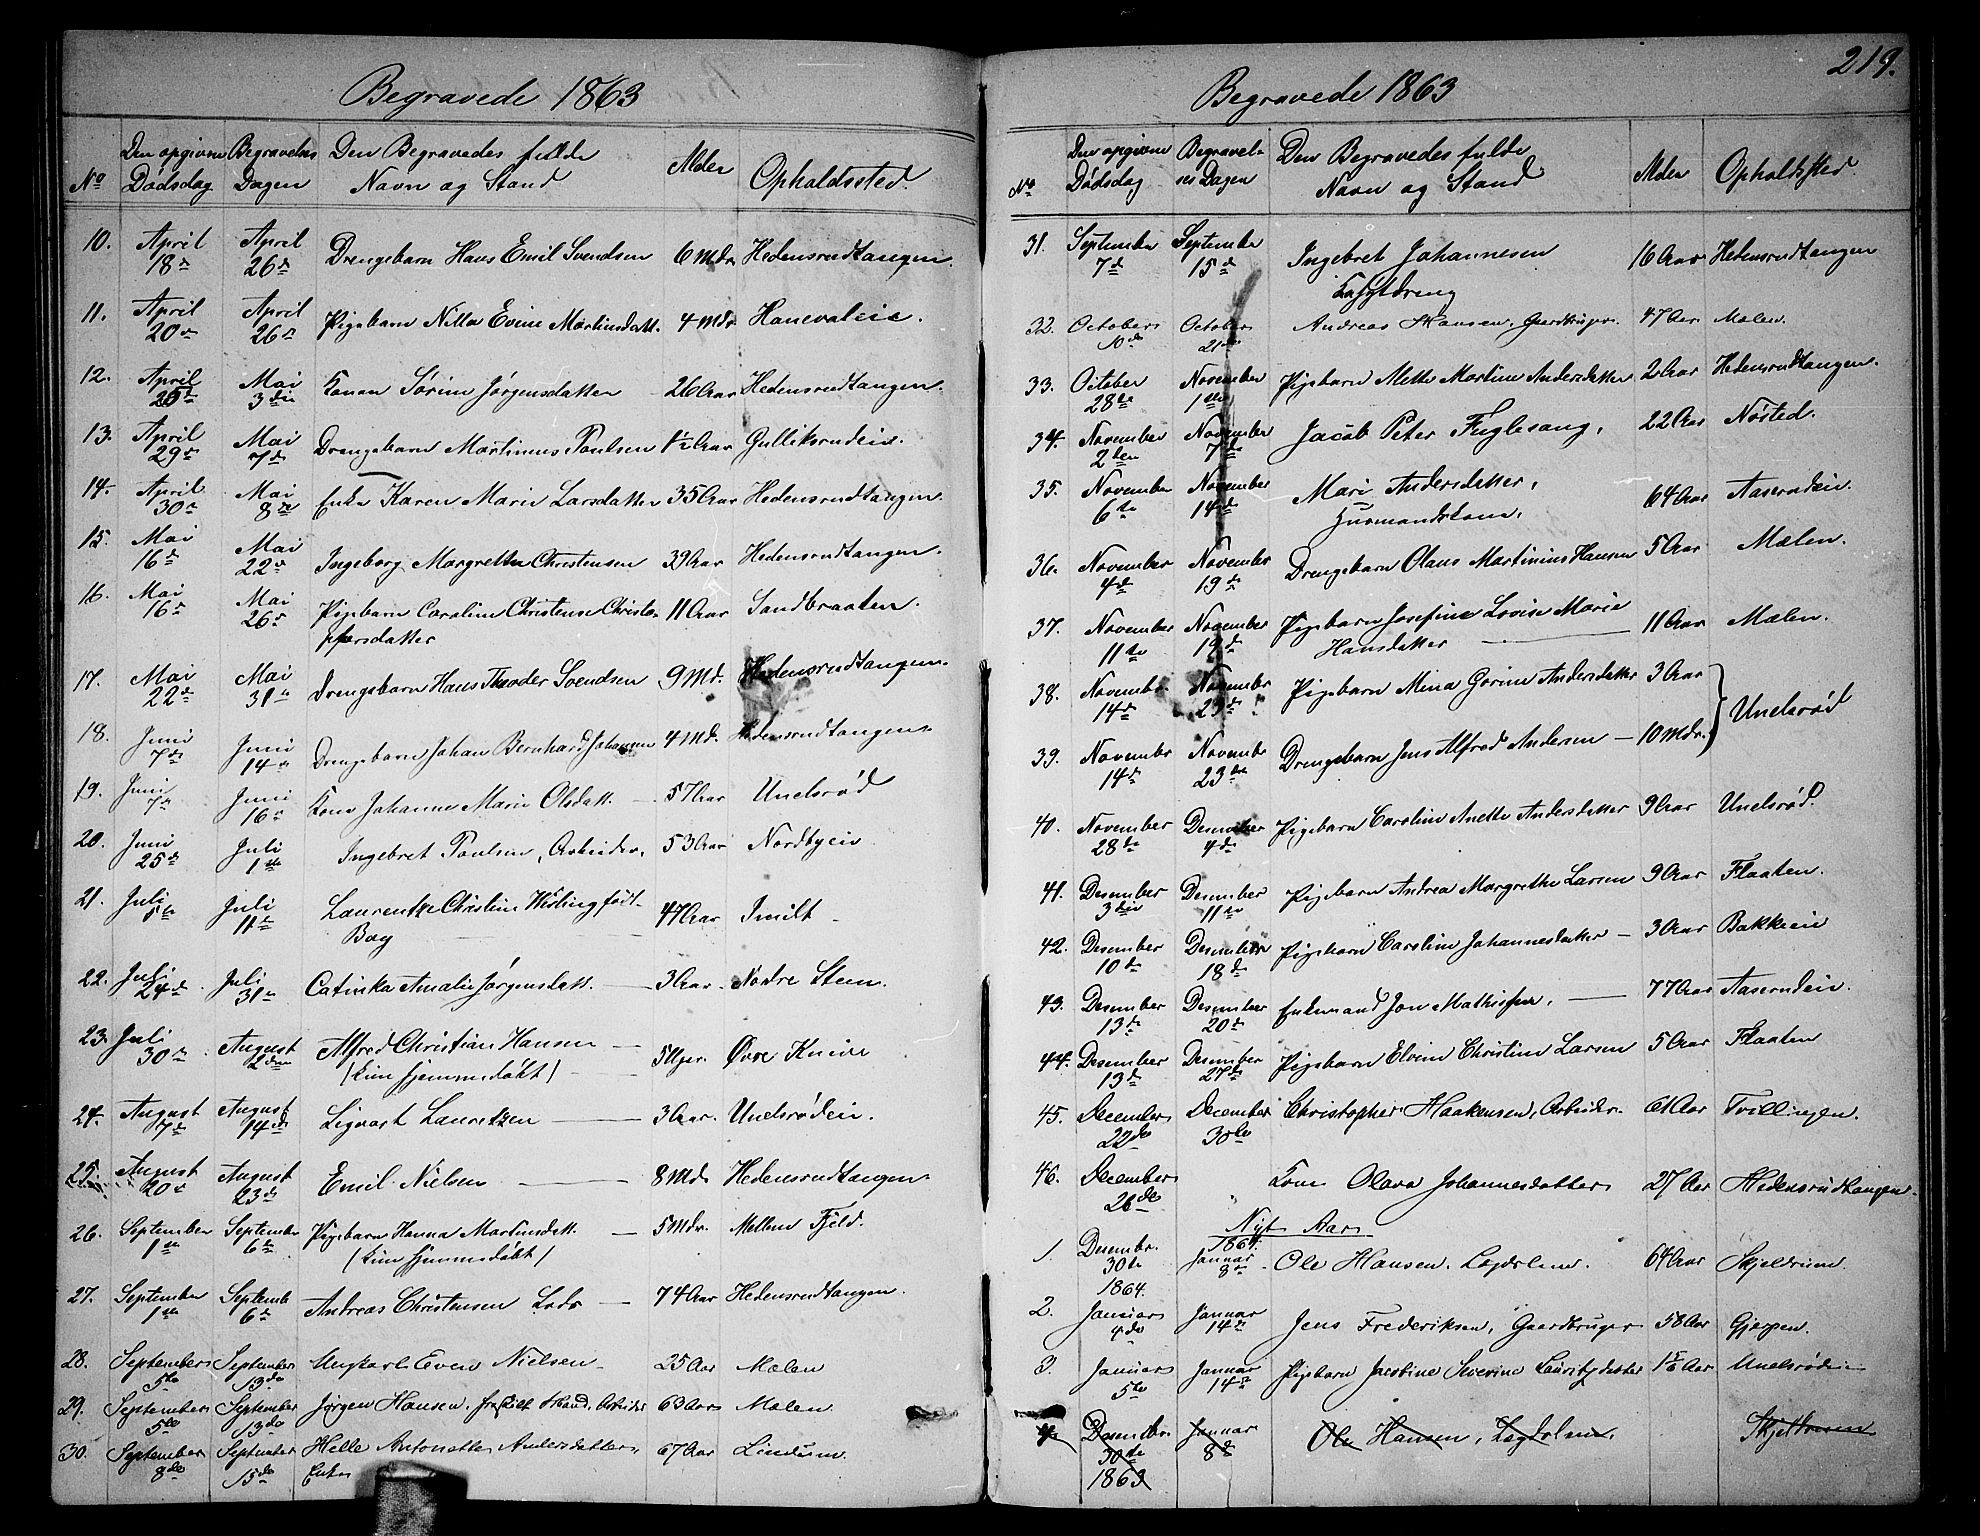 Begravede 1863
No Den opgivne Dødsdag Begravelses Dagen Den Begravedes fulde Navn og Stand Alder Opholdssted.
10. April 18de April 26de Drengebarn Hans Emil Svendsen 6 Mdr. Hedensrudtangen.
11. April 20de April 26de Pigebarn Nilla Evine Martinsdatt. 4 Mdr. Hanevoldeie.
12. April Mai 3die Konen Sørine Jørgensdatter 26 Aar Hedensrudtangen.
13. April 29de Mai 7de Drengebarn Martinius Poulsen 1½ Aar Gulliksrudeie.
14. April 30te Mai 8de Enke Karen Marie Larsdatter 35 Aar Hedensrudtangen.
15. Mai 16de Mai 22de Ingeborg Margrethe Christensen 39 Aar Hedensrudtangen.
16. Mai 16de Mai 26de Pigebarn Caroline Christense Christo-
pfersdatter 11 Aar Sandbraaten.
17. Mai 22de Mai 31te Drengebarn Hans Theoder Svendsen 9 Md. Hedensrudtangen.
18. Juni 7de Juni 14de Drengebarn Johan Bernhard Johansen 4 Md. Hedensrudtangen.
19. Juni 7de Juni 16de Kone Johanne Marie Olsdatt. 57 Aar Unelsrød
20. Juni 25de Juli 1ste Ingebret Poulsen, Arbeider, 53 Aar Nordbyeie
21. Juli 5te Juli 11te Laurentze Christine Hesling født
Boeg 47 Aar Smilt
22. Juli 24de Juli 31te Catinka Amalie Jørgensdatt. 3 Aar. Nordre Steen.
23. Juli 30te August 2den Alfred Christian Hansen
(kun hjemmedøbt) 5 Uger. Øvre Knive
24. August 7de August 14de Sigvart Lauretzen 3 Aar. Unelsrødeie.
25. August 20de August 23de Emil Nielsen 8 Md. Hedensrudtangen
26. September 1ste September 6te Pigebarn Hanna Martinsdatt.
(kun hjemmedøbt) 5 Mdr. Mellem Fjeld.
27. September 1ste September 6te Andreas Christensen Lods 74 Aar Hedensrudtangen.
28. September 5te September 13de Ungkarl Even Nielsen 25 Aar Mælen
29. September 5te September 13de Jørgen Hansen, fraskilt Mand, Arbeider 63 Aar Mælen.
30. September 8de September 15de Helle Antonette Andersdatter,
Enke 67 Aar Lindum.
Begravede 1863 219.
No Den opgivne Dødsdag Begravelses Dagen Den Begravedes fulde Navn og Stand Alder Opholdssted.
31. September 7de September 15de Ingebret Johannesen
16 Aar Hedensrudtangen
32. October 10de October 21de Andreas Hansen, Gaardbruger. 47 Aar Mælen.
33. October 28de November 1ste Pigebarn Mette Martine Andersdatter 2 Aar Hedensrudtangen.
34. November 2den November 7de Jacob Peter Fuglesang, 22 Aar Nøsted.
35. November 6te November 14de Mari Andersdatter,
Husmandskone. 64 Aar Aaserudeie.
36. November 4de November 19de Drengebarn Olaus Martinius Hansen 5 Aar Mælen.
37. November 11te November 19de Pigebarn Josefine Lovise Marie
Hansdatter 11 Aar Mælen.
38. November 14de November 23de Pigebarn Mina Gorine Andersdatter 3 Aar Unelsrød
39. November 14de November 23de Drengebarn Jens Alfred Andersen 10 Mdr.
40. November 28de Desember 4de Pigebarn Caroline Anette Andersdatter 9 Aar Unelsrød.
41. Desember 3die Desember 11te Pigebarn Andrea Margrethe Larsen 9 Aar Flaaten.
42. Desember 10de Desember 18de Pigebarn Caroline Johannesdatter 3 Aar Bakkeeie
43. Desember 13de Desember 20de Enkemand Jon Mathissen, 77 Aar Aaserudeie.
44. Desember 13de Desember 27de Pigebarn Elvine Christine Larsen 5 Aar Flaaten
45. December 22de December 30te Christopher Haakensen, Arbeider 61 Aar Tvillingen.
46. December 26de " Kone Olava Johannesdatter 27 Aar Hedensrudtangen.
Nyt Aar
1864.
1 Desembr. 30te Januar 8de Ole Hansen, Lægdslem. 64 Aar Skjeldrum.
1864.
2. Januar 4de Januar 14de Jens Frederiksen, Gaardbruger 58 Aar Gjerpen.
3. Januar 5te Januar 14de Pigebarn Jacobine Severine Lauritzdatter Aar Unelsrødeie
4. Desembr. 30te 1863 Januar 8de Ole Hansen, Lægdslem. Skjeldrum